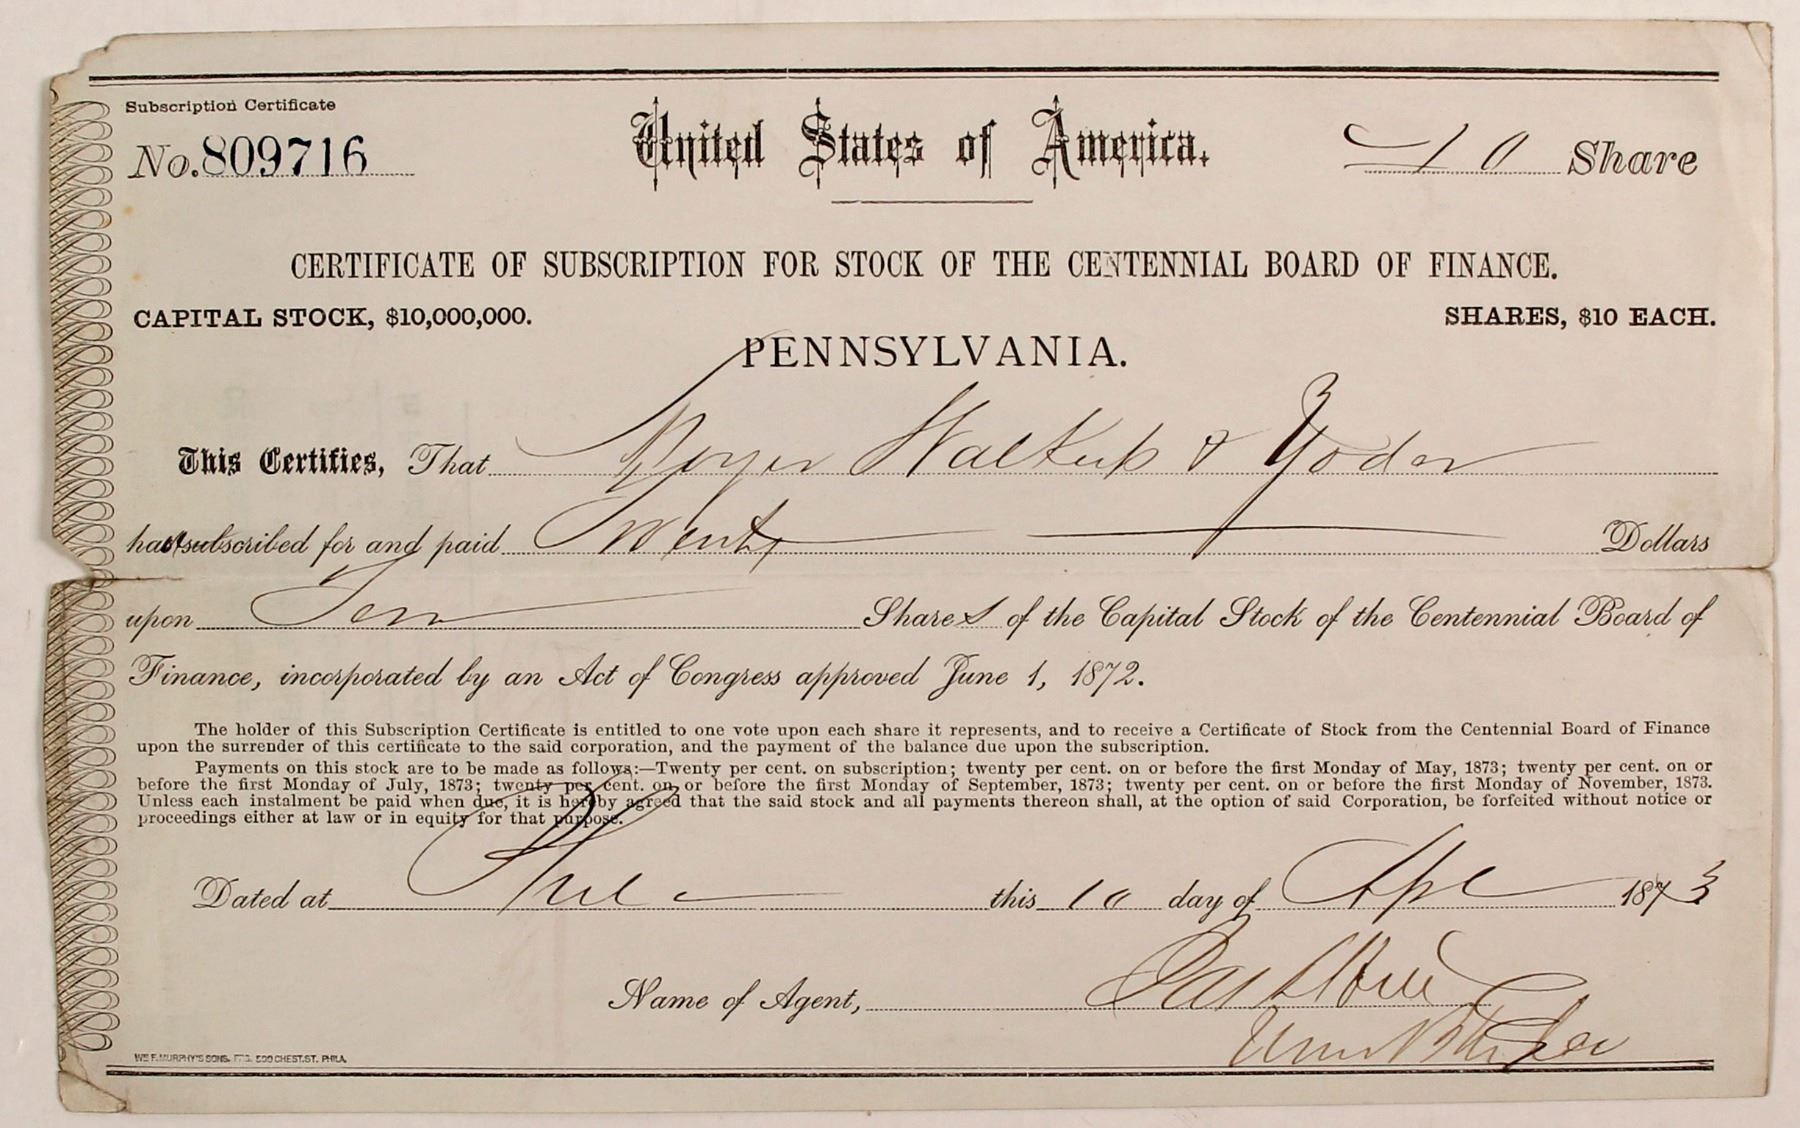 Subscription Certificate
No. 809716
United States of America.
10 Share
CERTIFICATE OF SUBSCRIPTION FOR STOCK OF THE CENTENNIAL BOARD OF FINANCE.
CAPITAL STOCK, $10,000,000.
SHARES, $10 EACH.
PENNSYLVANIA.
This Certifies, That Moyer Walkup & Yoder
has subscribed for and paid Twenty Dollars
upon Ten Shares of the Capital Stock of the Centennial Board of
Finance, incorporated by an Act of Congress approved June 1, 1872.
The holder of this Subscription Certificate is entitled to one vote upon each share it represents, and to receive a Certificate of Stock from the Centennial Board of Finance
upon the surrender of this certificate to the said corporation, and the payment of the balance due upon the subscription.
Payments on this stock are to be made as follows:—Twenty per cent. on subscription; twenty per cent. on or before the first Monday of May, 1873; twenty per cent. on or
before the first Monday of July, 1873; twenty per cent. on or before the first Monday of September, 1873; twenty per cent. on or before the first Monday of November, 1873.
Unless each instalment be paid when due, it is hereby agreed that the said stock and all payments thereon shall, at the option of said Corporation, be forfeited without notice or
proceedings either at law or in equity for that purpose.
Dated at Phila this 10 day of Apl 1873
Name of Agent,
WM F. MURPHY'S SONS, 509 CHEST. ST. PHILA.